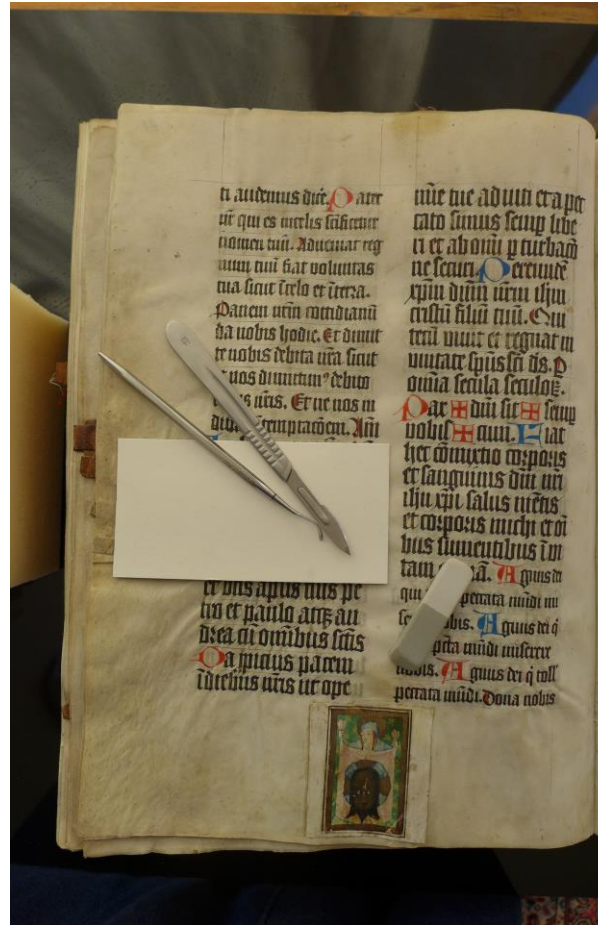 ti audemus dicē. Pater
nr̄ qui es in celis sc̄ificetur
nomen tuū. Adueniat reg
num tuū fiat voluntas
tua sicut ī celo et ī terra.
Panem nr̄m cottidianū
da nobis hodie. Et dimit
te nobis debita nr̄a sicut
et nos dimittimꝰ debito
nr̄is. Et ne nos in
temptacōem. Am̄
et bt̄is aplis tuis pe
tro et paulo atqꝫ an
drea cū omībus sc̄is
Da ꝓpicius pacem
ī diebus nr̄is ut ope
mīe tue adiuti et a pec
cato simus semꝑ libe
ri et ab omī ꝑturbacō
ne securi. Per eundē
xp̄m dn̄m nr̄m ihm̄
cristū filiū tuū. Qui
tecū viuit et regnat in
vnitate sp̄ussc̄i ds̄. P
om̄ia secula seculoꝝ.
Pax ✠ dn̄i sit ✠ semꝑ
vobis ✠ cum. Fiat
hec cōmixtio corporis
et sanguinis dn̄i nr̄i
ihū xp̄i salus mētis
et corporis michi et oī
bus sumentibus ī vi
tam Agnus dei
qui peccata mūdi mi
Agnus dei q̄
pctā mūdi miserere
nobis. Agnus dei q̄ toll
peccata mūdi. Dona nobis